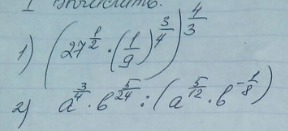 1 Вычислить.
1) (27^{1/2} · (1/9)^{3/4})^{4/3}
2) a^{3/4} · b^{5/24} : (a^{5/12} · b^{-1/8})